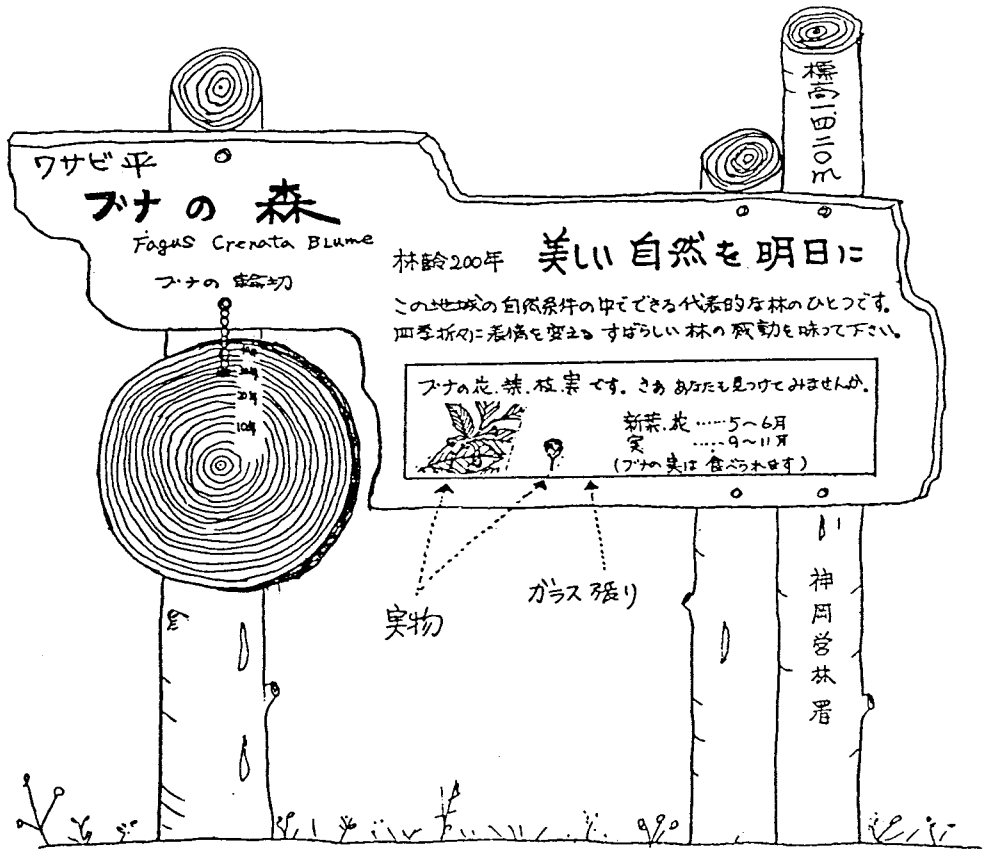 標高一四二〇m
ワサビ平
ブナの森
Fagus Crenata Blume
ブナの輪切
10年
20年
林齢200年 美しい自然を明日に
この地域の自然条件の中でできる代表的な林のひとつです。
四季折々に表情を変えるすばらしい林の感動を味って下さい。
ブナの花.葉.枝.実です。さああなたも見つけてみませんか。
新葉.花……5〜6月
実 ……9〜11月
(ブナの実は食べられます)
実物
ガラス張り
神岡営林署